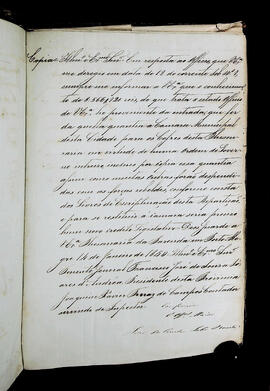 Copia Illmo. Exmo. Snr. Em resposta ao Officio, que VEx.
me dirigio em data de 12 do corrente sob No. 2,
cumpre-me informar a VEx. que o conhecimento
de 8.566$721 rs, de que trata o citado Officio
de VEx. he proveniente da entrada, que fez
da quelle quantia a Camara Municipal
desta Cidade para os Cofres desta Thesou-
raria em virtude de huma Ordem do Gover-
no interino, mesmo por copia essa quantia
assim como muitas outras forão despendi-
das com as forças rebeldes, conforme consta
dos Livros da Escripturação desta Repartição
e para se restituir a Camara seria preciso
hum novo credito Legislativo. Deos guarde a
VEx. Thesouraria da Fazenda em Porto Ale-
gre 14 de Janeiro de 1844. Illmo. e Exmo. Snr.
Tenente General Francisco José de Souza Soares
de Andrea Presidente desta Provincia
Joaquim Xavier Ferraz de Campos Contador
servindo de Inspector.
Conforme
O Offal. Maior